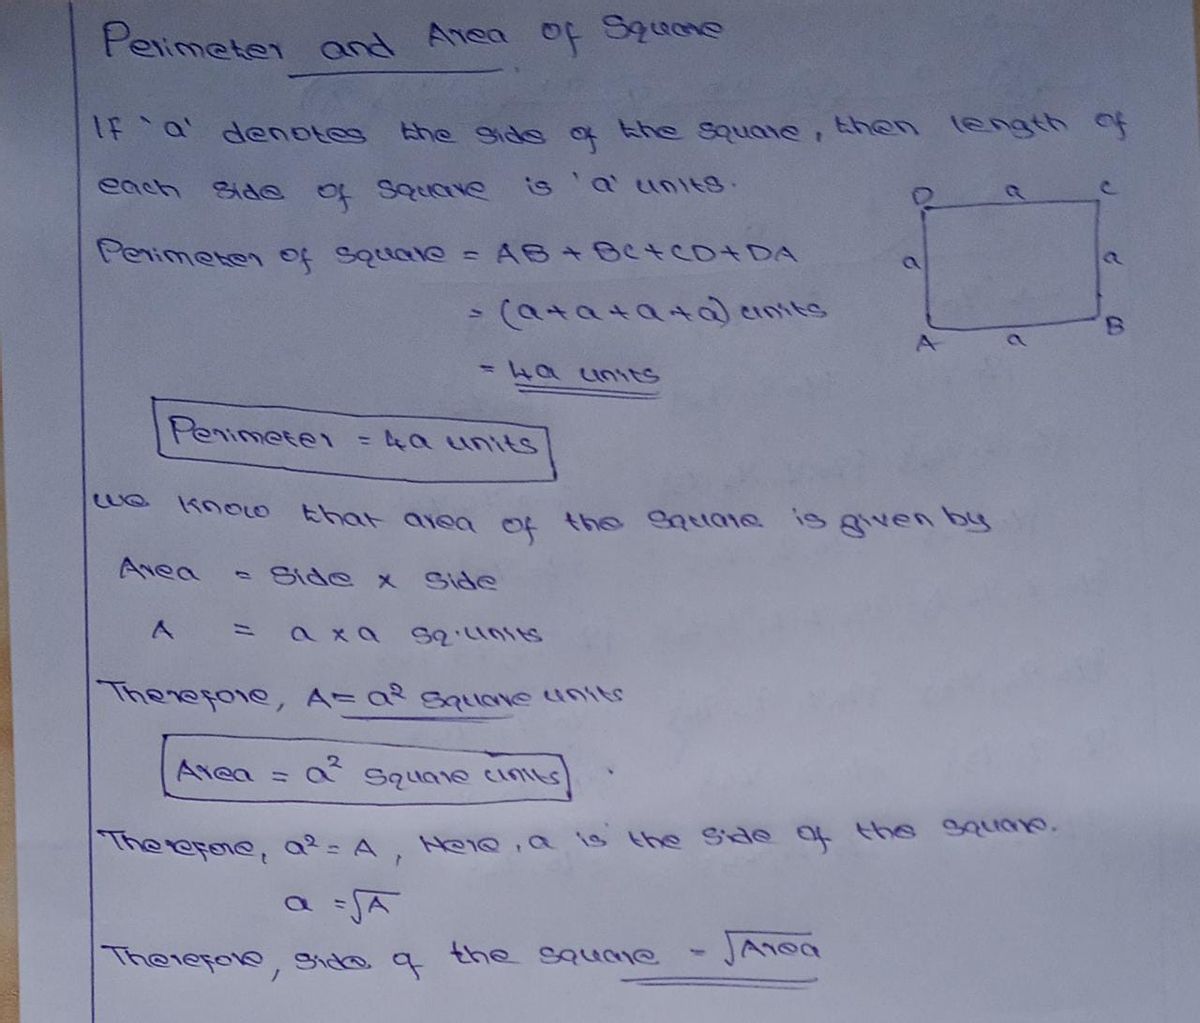 Perimeter and Area of Square
If 'a' denotes the side of the square, then length of
each side of square is 'a' units.
D a C
Perimeter of square = AB + BC + CD + DA
a a
= (a + a + a + a) units
A a B
= 4a units
Perimeter = 4a units
We know that area of the square is given by
Area = side x side
A = a x a sq.units
Therefore, A = a² square units
Area = a² square units
Therefore, a² = A, Here, a is the side of the square.
a = √A
Therefore, side of the square = √Area